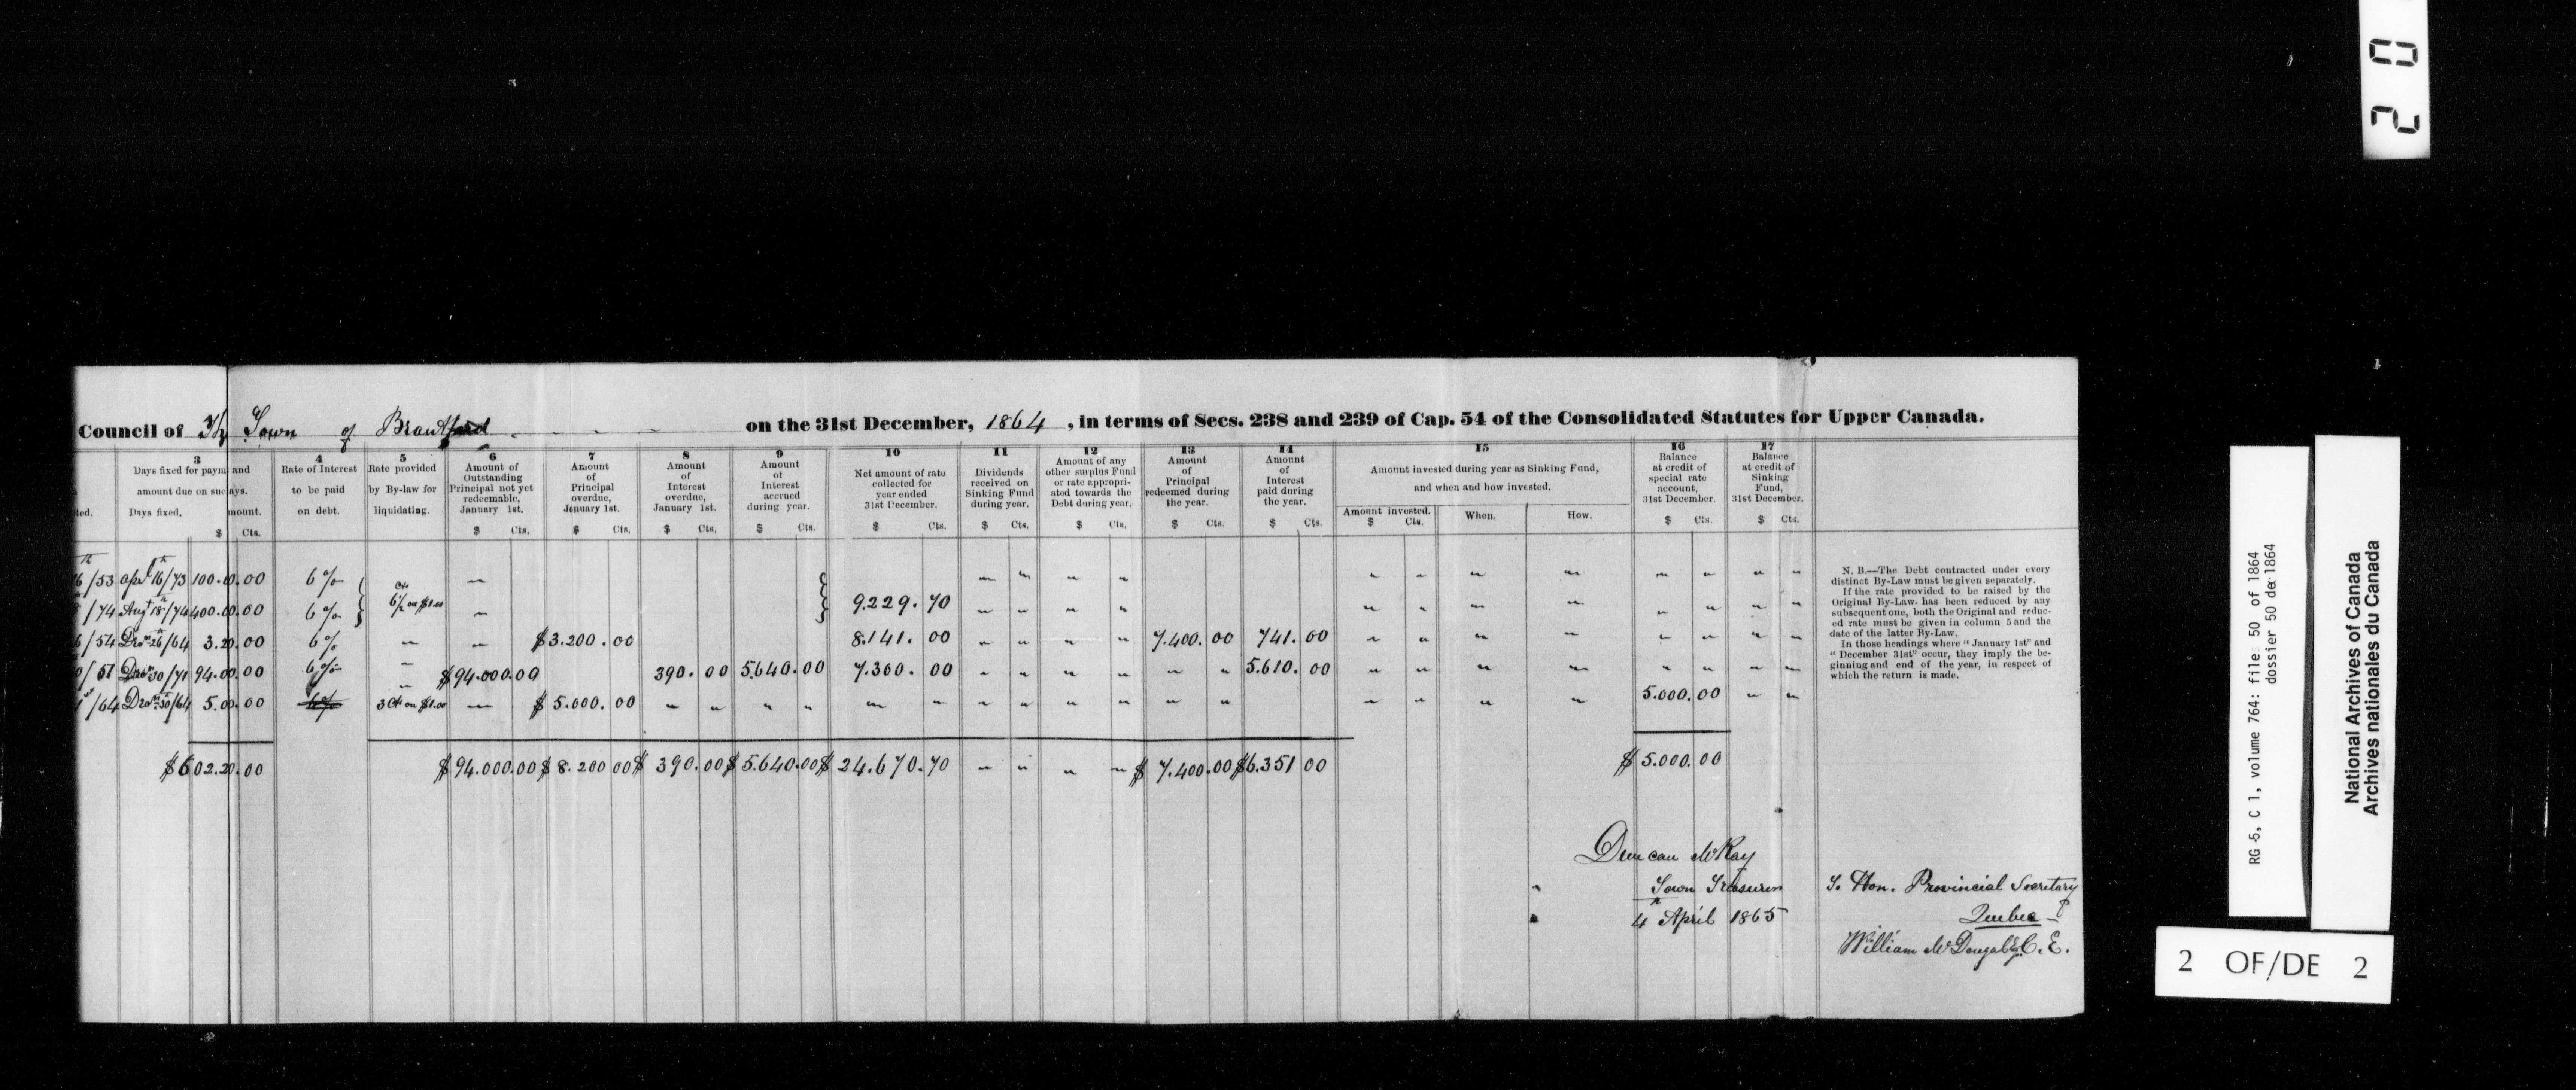 Council of The Town of Brantford on the 31st December, 1864, in terms of Secs. 238 and 239 of Cap. 54 of the Consolidated Statutes for Upper Canada.
3 4 5 6 7 8 9 10 11 12 13 14 15 16 17
Days fixed for paym and amount due on suc ays.
ted. Days fixed. mount. $ Cts.
Rate of Interest to be paid on debt.
Rate provided by By-law for liquidating.
Amount of Outstanding Principal not yet redeemable, January 1st. $ Cts.
Amount of Principal overdue, January 1st. $ Cts.
Amount of Interest overdue, January 1st. $ Cts.
Amount of Interest accrued during year. $ Cts.
Net amount of rate collected for year ended 31st December. $ Cts.
Dividends received on Sinking Fund during year. $ Cts.
Amount of any other surplus Fund or rate appropriated towards the Debt during year. $ Cts.
Amount of Principal redeemed during the year. $ Cts.
Amount of Interest paid during the year. $ Cts.
Amount invested during year as Sinking Fund, and when and how invested.
Amount invested. $ Cts. When. How.
Balance at credit of special rate account, 31st December. $ Cts.
Balance at credit of Sinking Fund, 31st December. $ Cts.
16/53 Apr 16th/73 100.00.00 6% —
/74 Augt 18th/74 400.00.00 6% 6 1/2 Cts on $1.00 — 9.229.70
6/54 26/64 3.20.00 6% — — $3.200.00 8.141.00 7.400.00 741.00
0/51 30/71 94.00.00 6% — $94.000.00 390.00 5.640.00 7.300.00 5.610.00
1st/64 30/64 5.00.00 6% 3 Cts on $1.00 — $5.000.00 5.000.00
$602.20.00 $94.000.00 $8.200 00 $390.00 $5.640.00 $24.670.70 $7.400.00 $6.351 00 $5.000.00
N. B.—The Debt contracted under every
distinct By-Law must be given separately.
If the rate provided to be raised by the
Original By-Law has been reduced by any
subsequent one, both the Original and reduc-
ed rate must be given in column 5 and the
date of the latter By-Law.
In those headings where "January 1st" and
"December 31st" occur, they imply the be-
ginning and end of the year, in respect of
which the return is made.
Duncan McKay
Town Treasurer
4th April 1865
To Hon. Provincial Secretary
Quebec
William McDougall C. E.
20
RG 5, C 1, volume 764: file 50 of 1864
dossier 50 de 1864
National Archives of Canada
Archives nationales du Canada
2 OF/DE 2